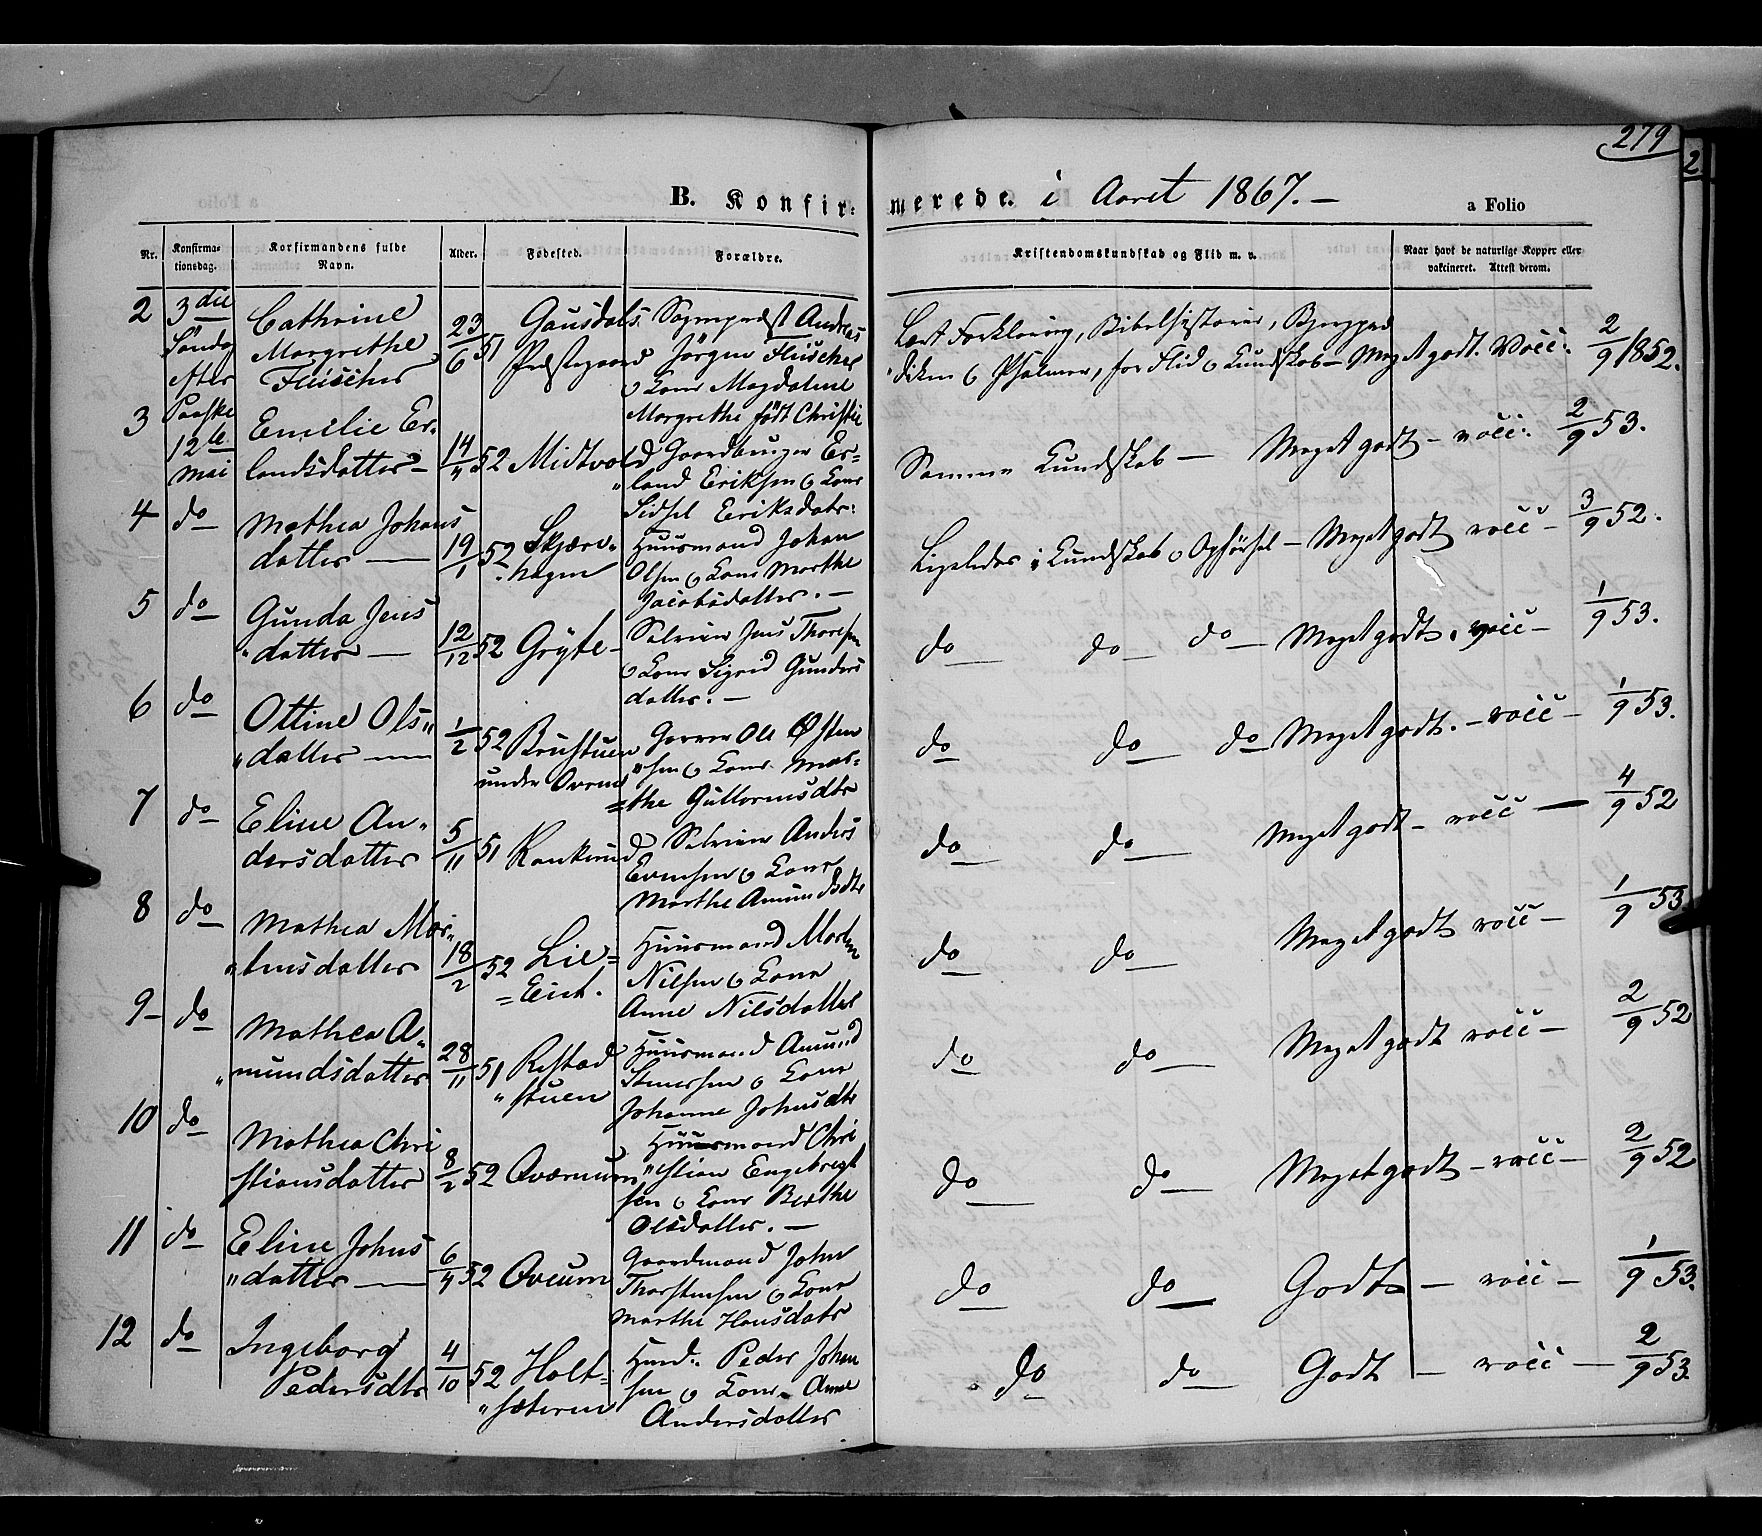 279
2
B. Konfir: merede. i Aaret 1867. —
a Folio
Nr.
Konfirma-
tionsdag.
Korfirmandens fulde
Navn.
Alder.
Fødested.
Forældre.
Kristendomskundskab og Flid m. v.
Naar havt de naturlige Kopper eller
vakcineret. Attest derom.
2 3die
Søndag
efter
Paaske
12te
Mai
Cathrine
Margrethe
Fleischer
23/6 51
Gausdals
Præstegaard
Sognepræst Andreas
Jörgen Fleischer
o Kone Magdalene
Margrethe födt Christie
Læst Forklaring, Bibelhistorie,
o Psalmer, for Flid o Kundskab — Meget godt. Vacc: 2/9 1852.
3
Emilie Er-
landsdatter —
14/4 52 Midtvold
Gaardbruger Er=
land Eriksen o Kone
Sidsel Eriksdatr:
Samme Kundskab — Meget godt — vacc: 2/9 53.
4 do
Mathea Johans
datter —
19/1 52 Skjærv-
hagen
Huusmand Johan
Olsen o Kone Marthe
Jacobsdatter. —
Ligeledes i Kundskab o Opförsel — Meget godt vacc — 3/9 52.
5 do
Gunda Jens
datter —
12/12 52 Gryte —
Selveier Jens Thoresen
o Kone Sigrid Gunders
datter. —
do do do — Meget godt. vacc — 1/9 53.
6 do
Ottine Ols"
"datter —
1/2 52 Brustuen
under Överud
Garver Ole Østen
"sen o Kone Mar-
=the Guttormsdtr
do do do Meget godt. — vacc — 1/9 53.
7 do
Eline An-
dersdatter
5/11 51 Kankerud
Selveier Anders
Evensen o Kone
Marthe Amundsdtr
do do Meget godt — vacc — 4/9 52
8 do
Mathea Mor-
"tensdatter
18/2 52 Lie=
=Eiet.
Huusmand Morten
Nilsen o Kone
Anne Nilsdatter
do do Meget godt vacc — 1/9 53.
9 do
Mathea A-
"mundsdatter
28/11 51 Restad
"stuen
Huusmand Amund
Stenersen o Kone
Johanne Johnsdtr
do do Meget godt vacc — 2/9 52
10 do
Mathea Chri
stiansdatter
8/2 52 Overnum
Huusmand Chri
"stian Engebregt
sen o Kone Berthe
Olsdatter. —
do do Meget godt — vacc — 2/9 52
11 do
Eline Johns
"datter —
6/4 52 Oveum
Gaardmand John
Thorstensen o Kone
Marthe Hansdatr
do do Godt — vacc — 1/9 53.
12 do
Ingeborg
Pedersdtr
4/10 52 Holt=
"sæteren
Husd: Peder Johan
sen o Kone Anne
Andersdatter
do do Godt — vacc — 2/9 53.